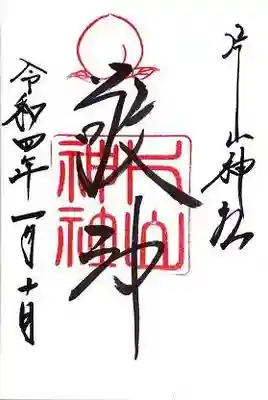 片山神社
敬神
片山
神社
令和四年一月十日